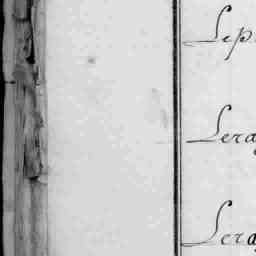 Lep
Lera
Lera